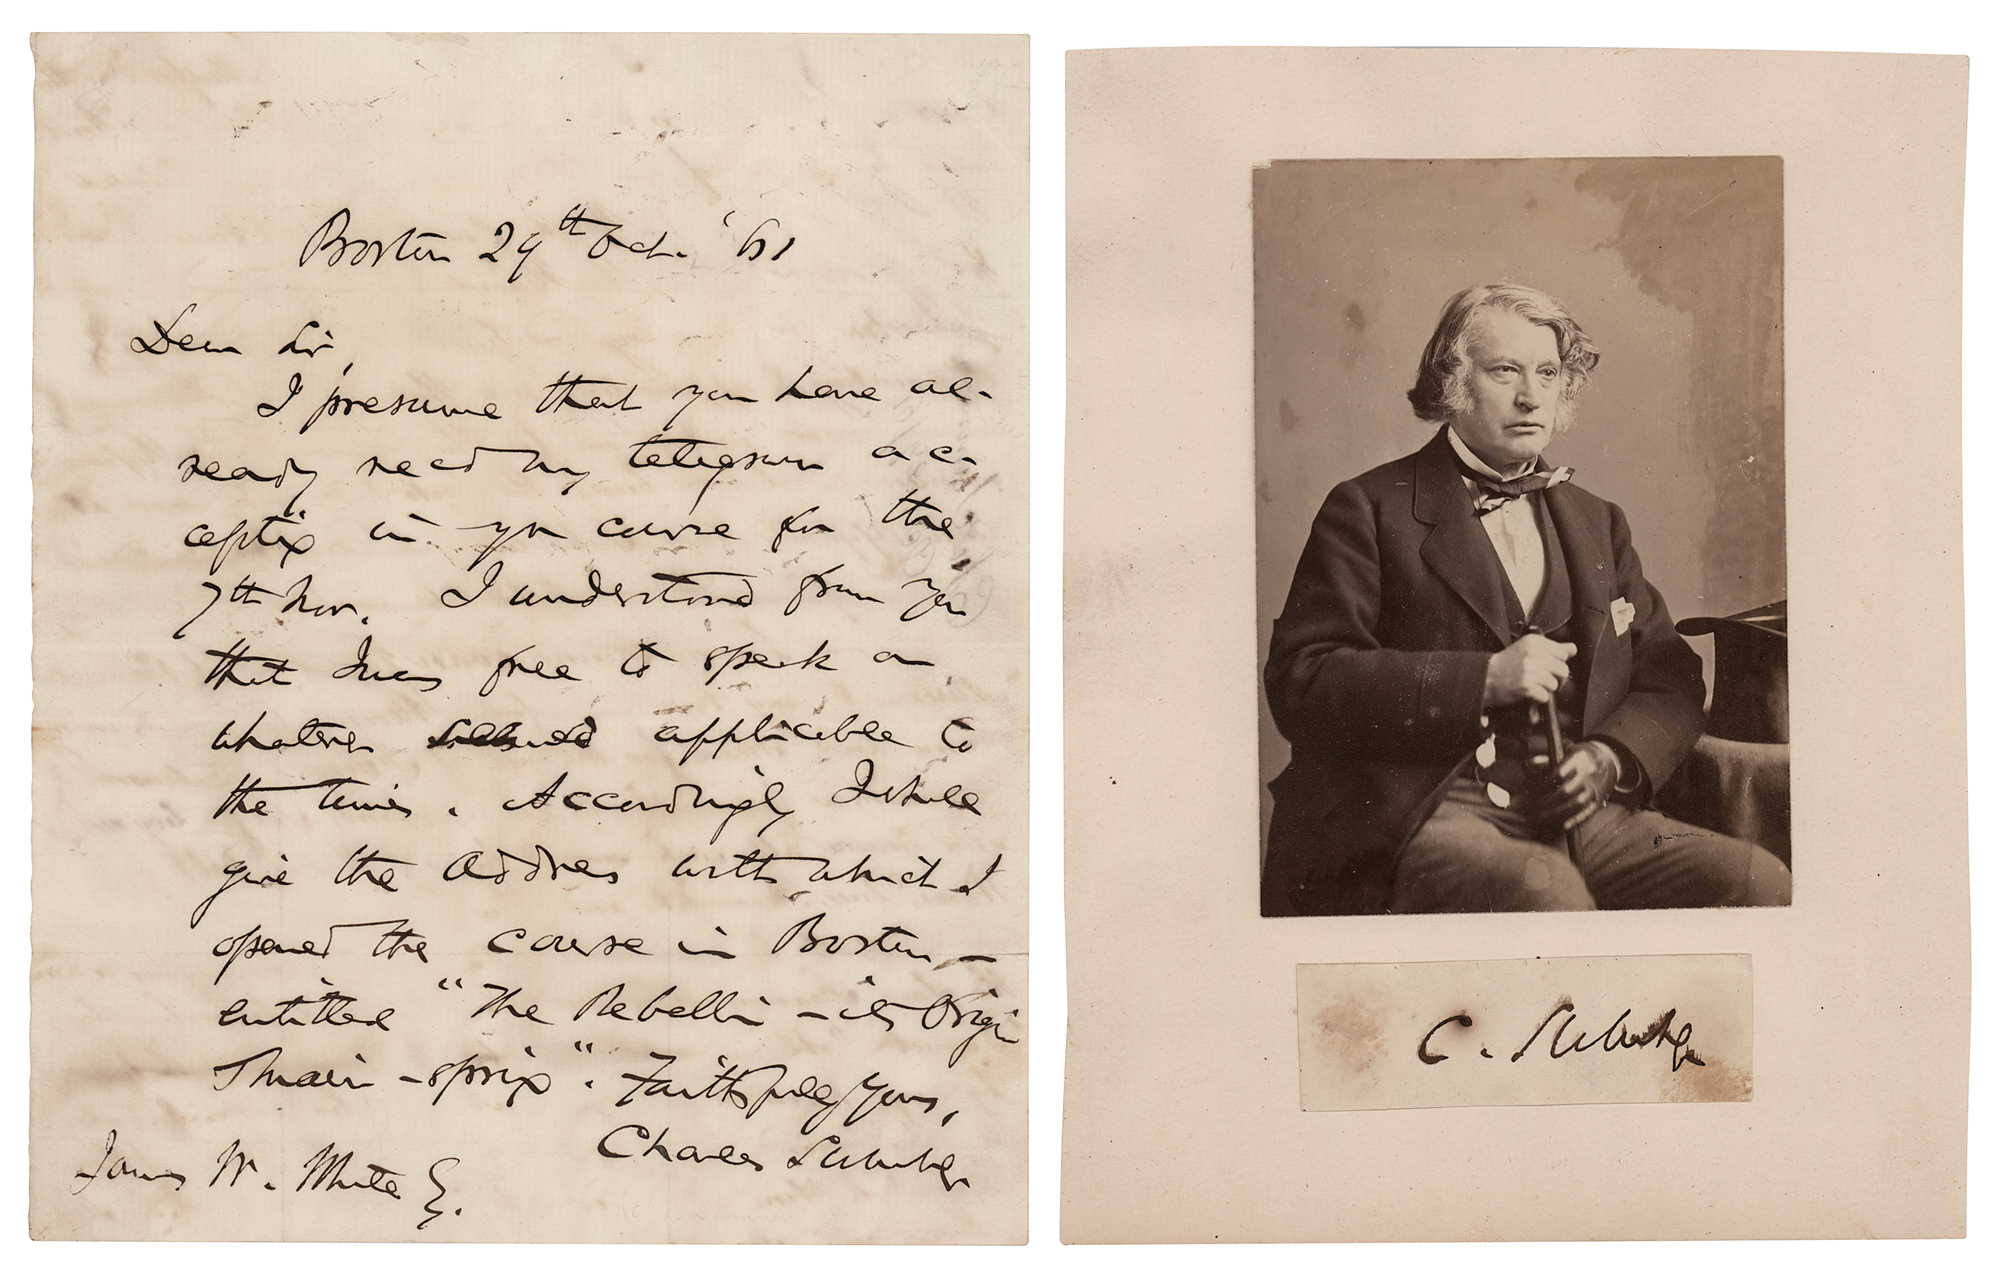 Boston 29th Oct. '61
Dear Sir,
I presume that you have al-
ready recd my telegram ac-
cepting in yr course for the
7th Nov. I understood from you
that I was free to speak on
whatever seemed applicable to
the times. Accordingly I shall
give the address with which I
opened the course in Boston –
entitled "The Rebellion – its Origin
& main-spring". Faithfully Yours,
Charles Sumner
James W. White Esq.
C. Sumner